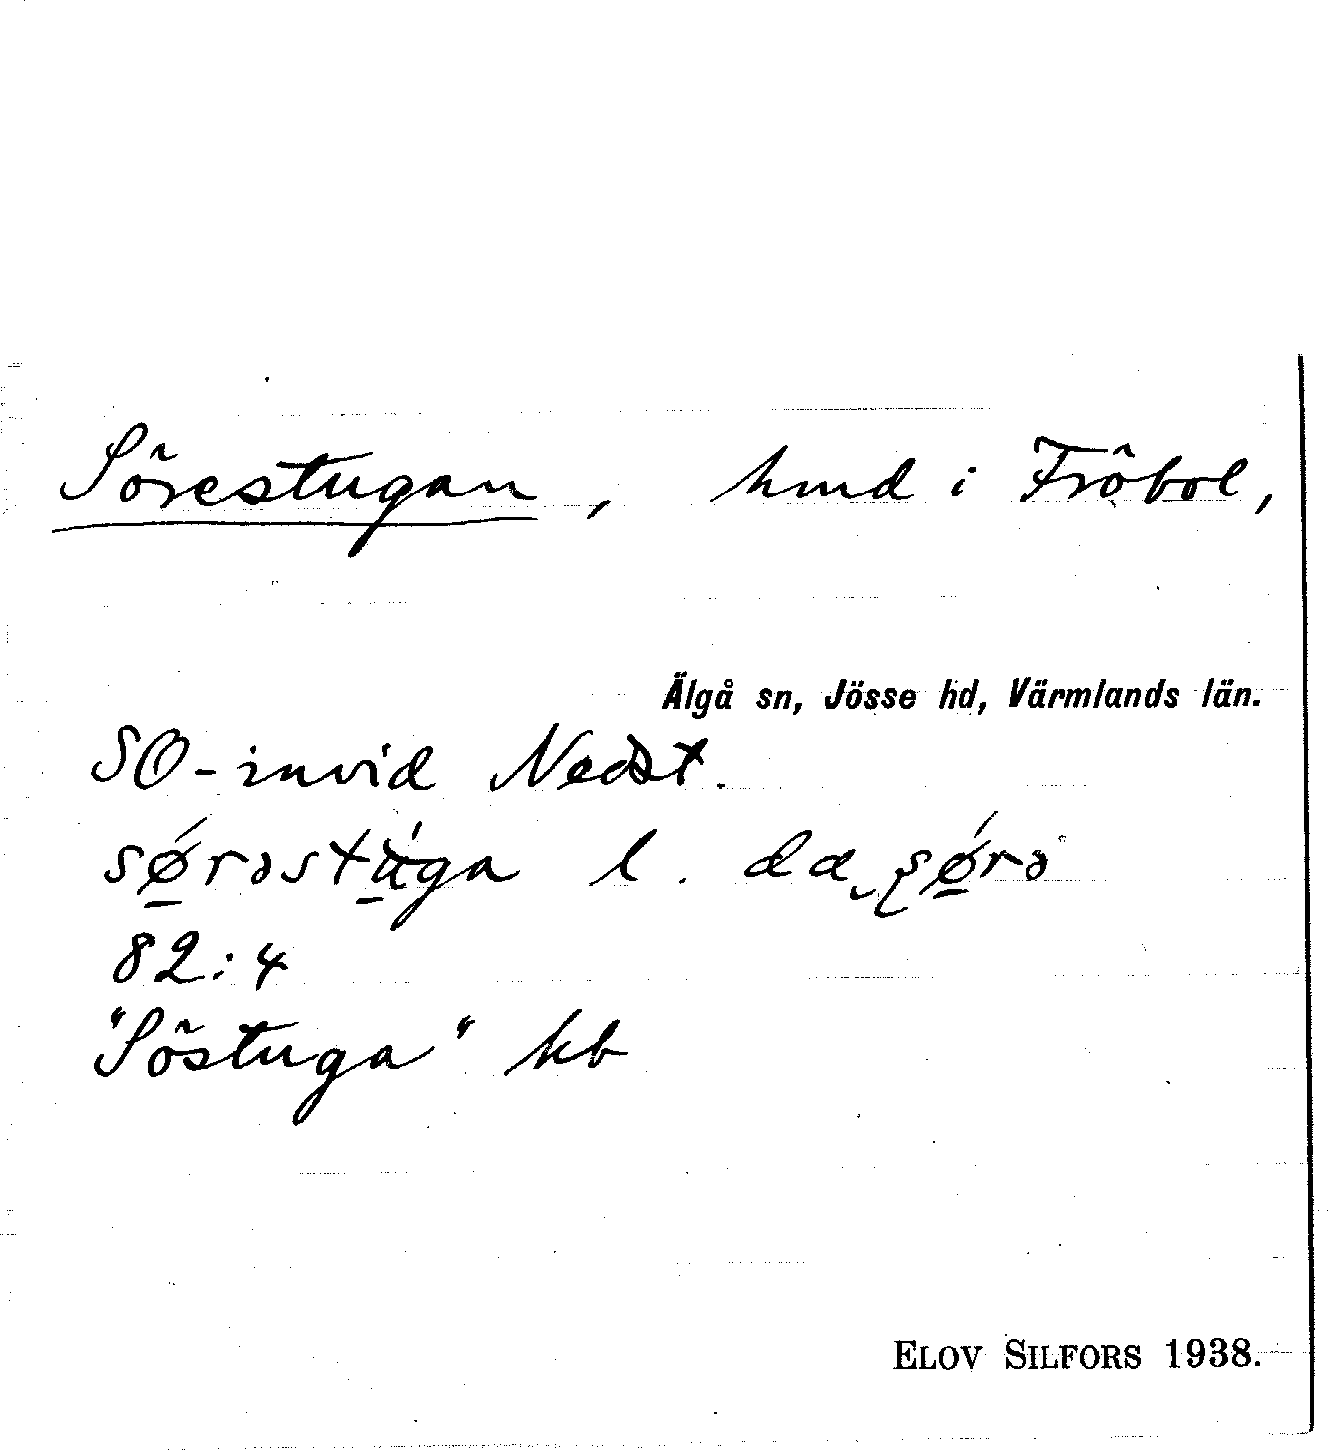 Sörestugan, hmd i Fröbol,
Älgå sn, Jösse hd, Värmlands län.
SO-invid Nedst.
sǿ̱rəstú̱ga l. da sǿ̱rə
82:4
"Söstuga" kb
ELOV SILFORS 1938.